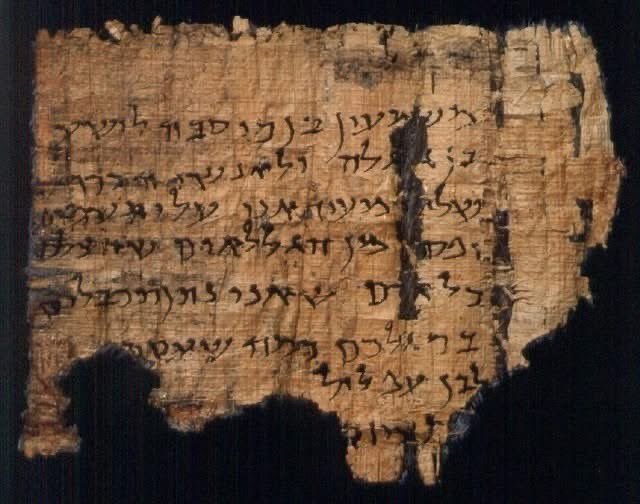 משמעון בן כוסבה לישע
בן גלגלה ולאנשי הכרך
שלום מעיד אני עלי תשמים
מן הגללאים שהצלם
כל אדם שאני נותן תכבלים
ברגלכם כמה שעסת
לבן עפלול